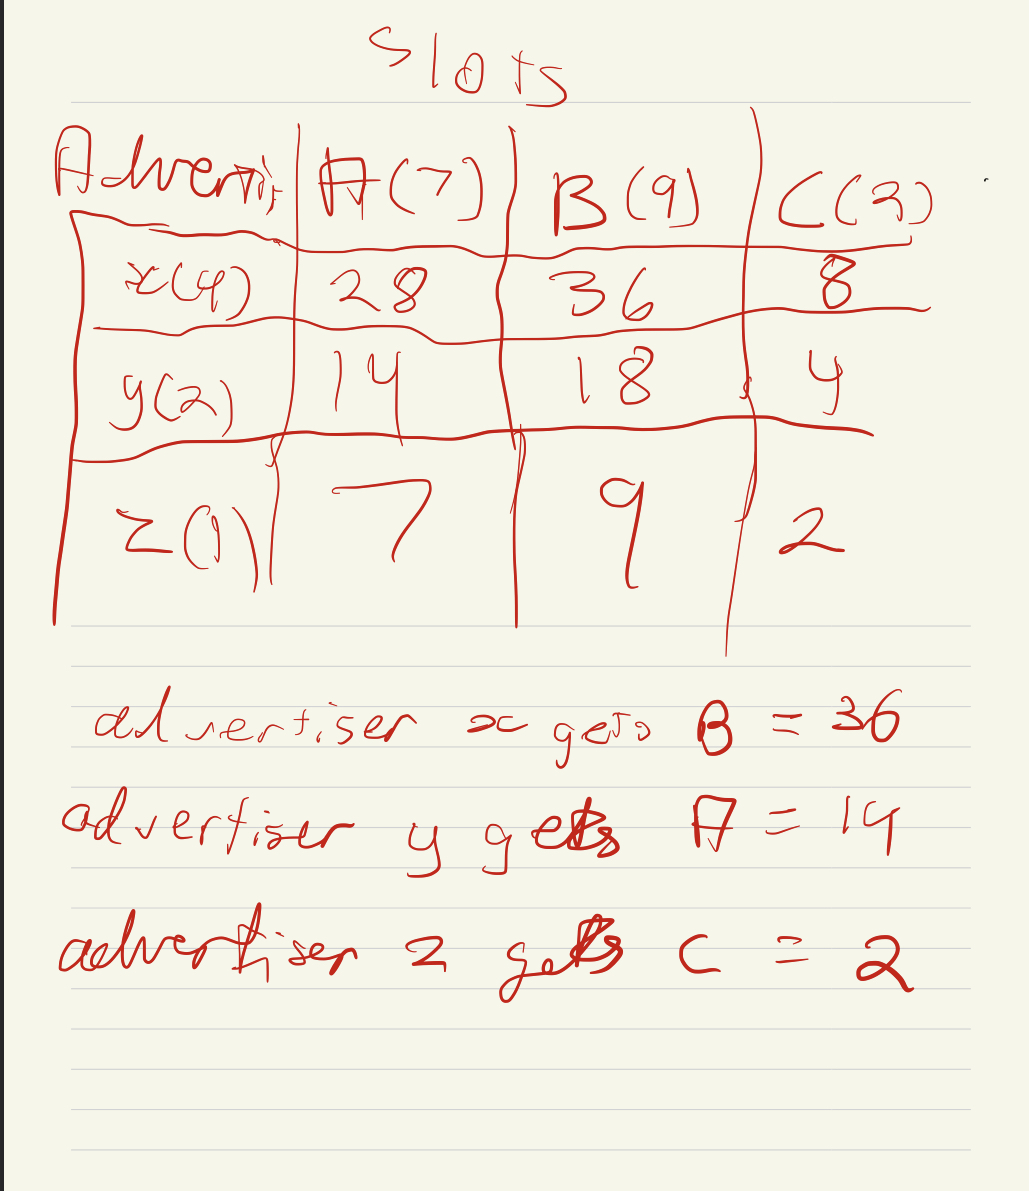 Slots
Adverti, A(7) B(9) C(2)
x(4) 28 36 8
y(2) 14 18 4
z(1) 7 9 2
advertiser x gets B = 36
advertiser y gets A = 14
advertiser z gets C = 2